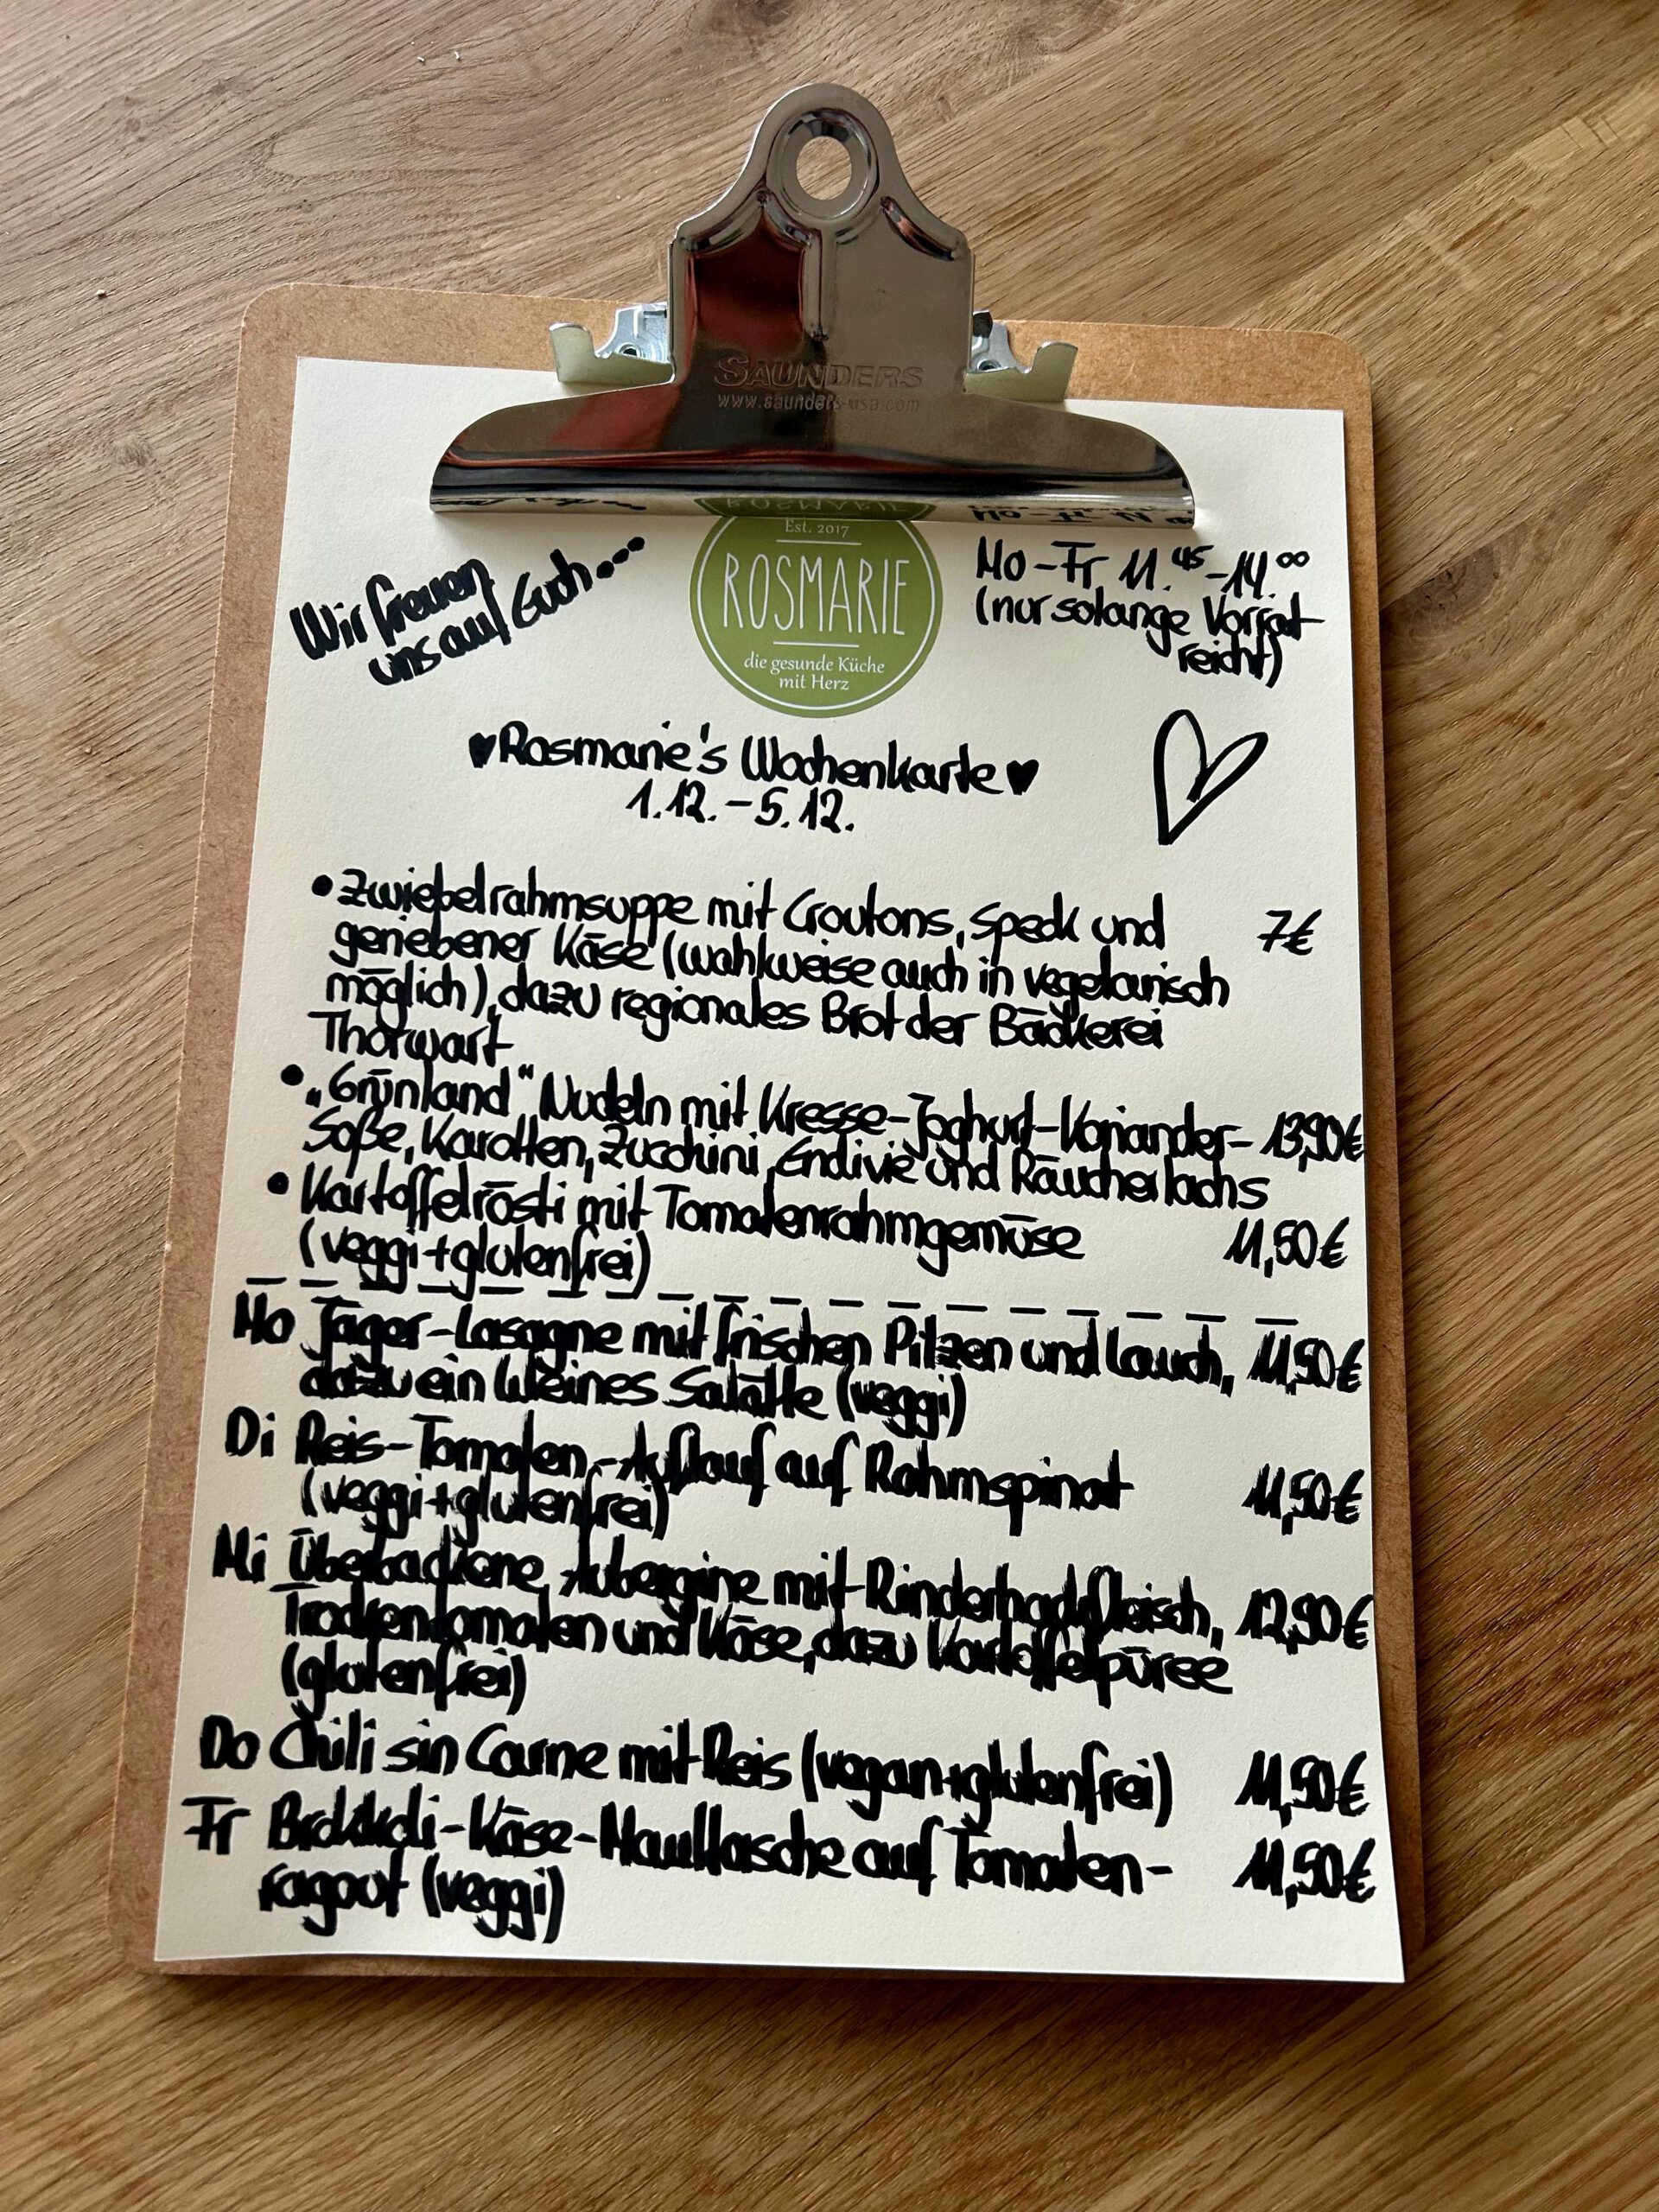 SAUNDERS
www.saunders-usa.com
Est. 2017
ROSMARIE
die gesunde Küche
mit Herz
Wir freuen
uns auf Euch...
Mo-Fr 11.45-14.00
(nur solange Vorrat
reicht)
♥Rosmarie's Wochenkarte♥
1.12.-5.12.
•Zwiebelrahmsuppe mit Croutons, Speck und 7€
geriebener Käse (wahlweise auch in vegetarisch
möglich), dazu regionales Brot der Bäckerei
Thorwart
•„Grünland“ Nudeln mit Kresse-Joghurt-Koriander- 13,90€
Soße, Karotten, Zucchini, Endivie und Räucherlachs
•Kartoffelrösti mit Tomatenrahmgemüse 11,50€
(veggi+glutenfrei)
Mo Jäger-Lasagne mit frischen Pilzen und Lauch, 11,90€
dazu ein kleines Salätle (veggi)
Di Reis-Tomaten-Auflauf auf Rahmspinat 11,50€
(veggi+glutenfrei)
Mi Überbackene Aubergine mit Rinderhackfleisch, 12,90€
Trockentomaten und Käse, dazu Kartoffelpüree
(glutenfrei)
Do Chili sin Carne mit Reis (vegan+glutenfrei) 11,90€
Fr Brokkoli-Käse-Maultasche auf Tomaten- 11,50€
ragout (veggi)